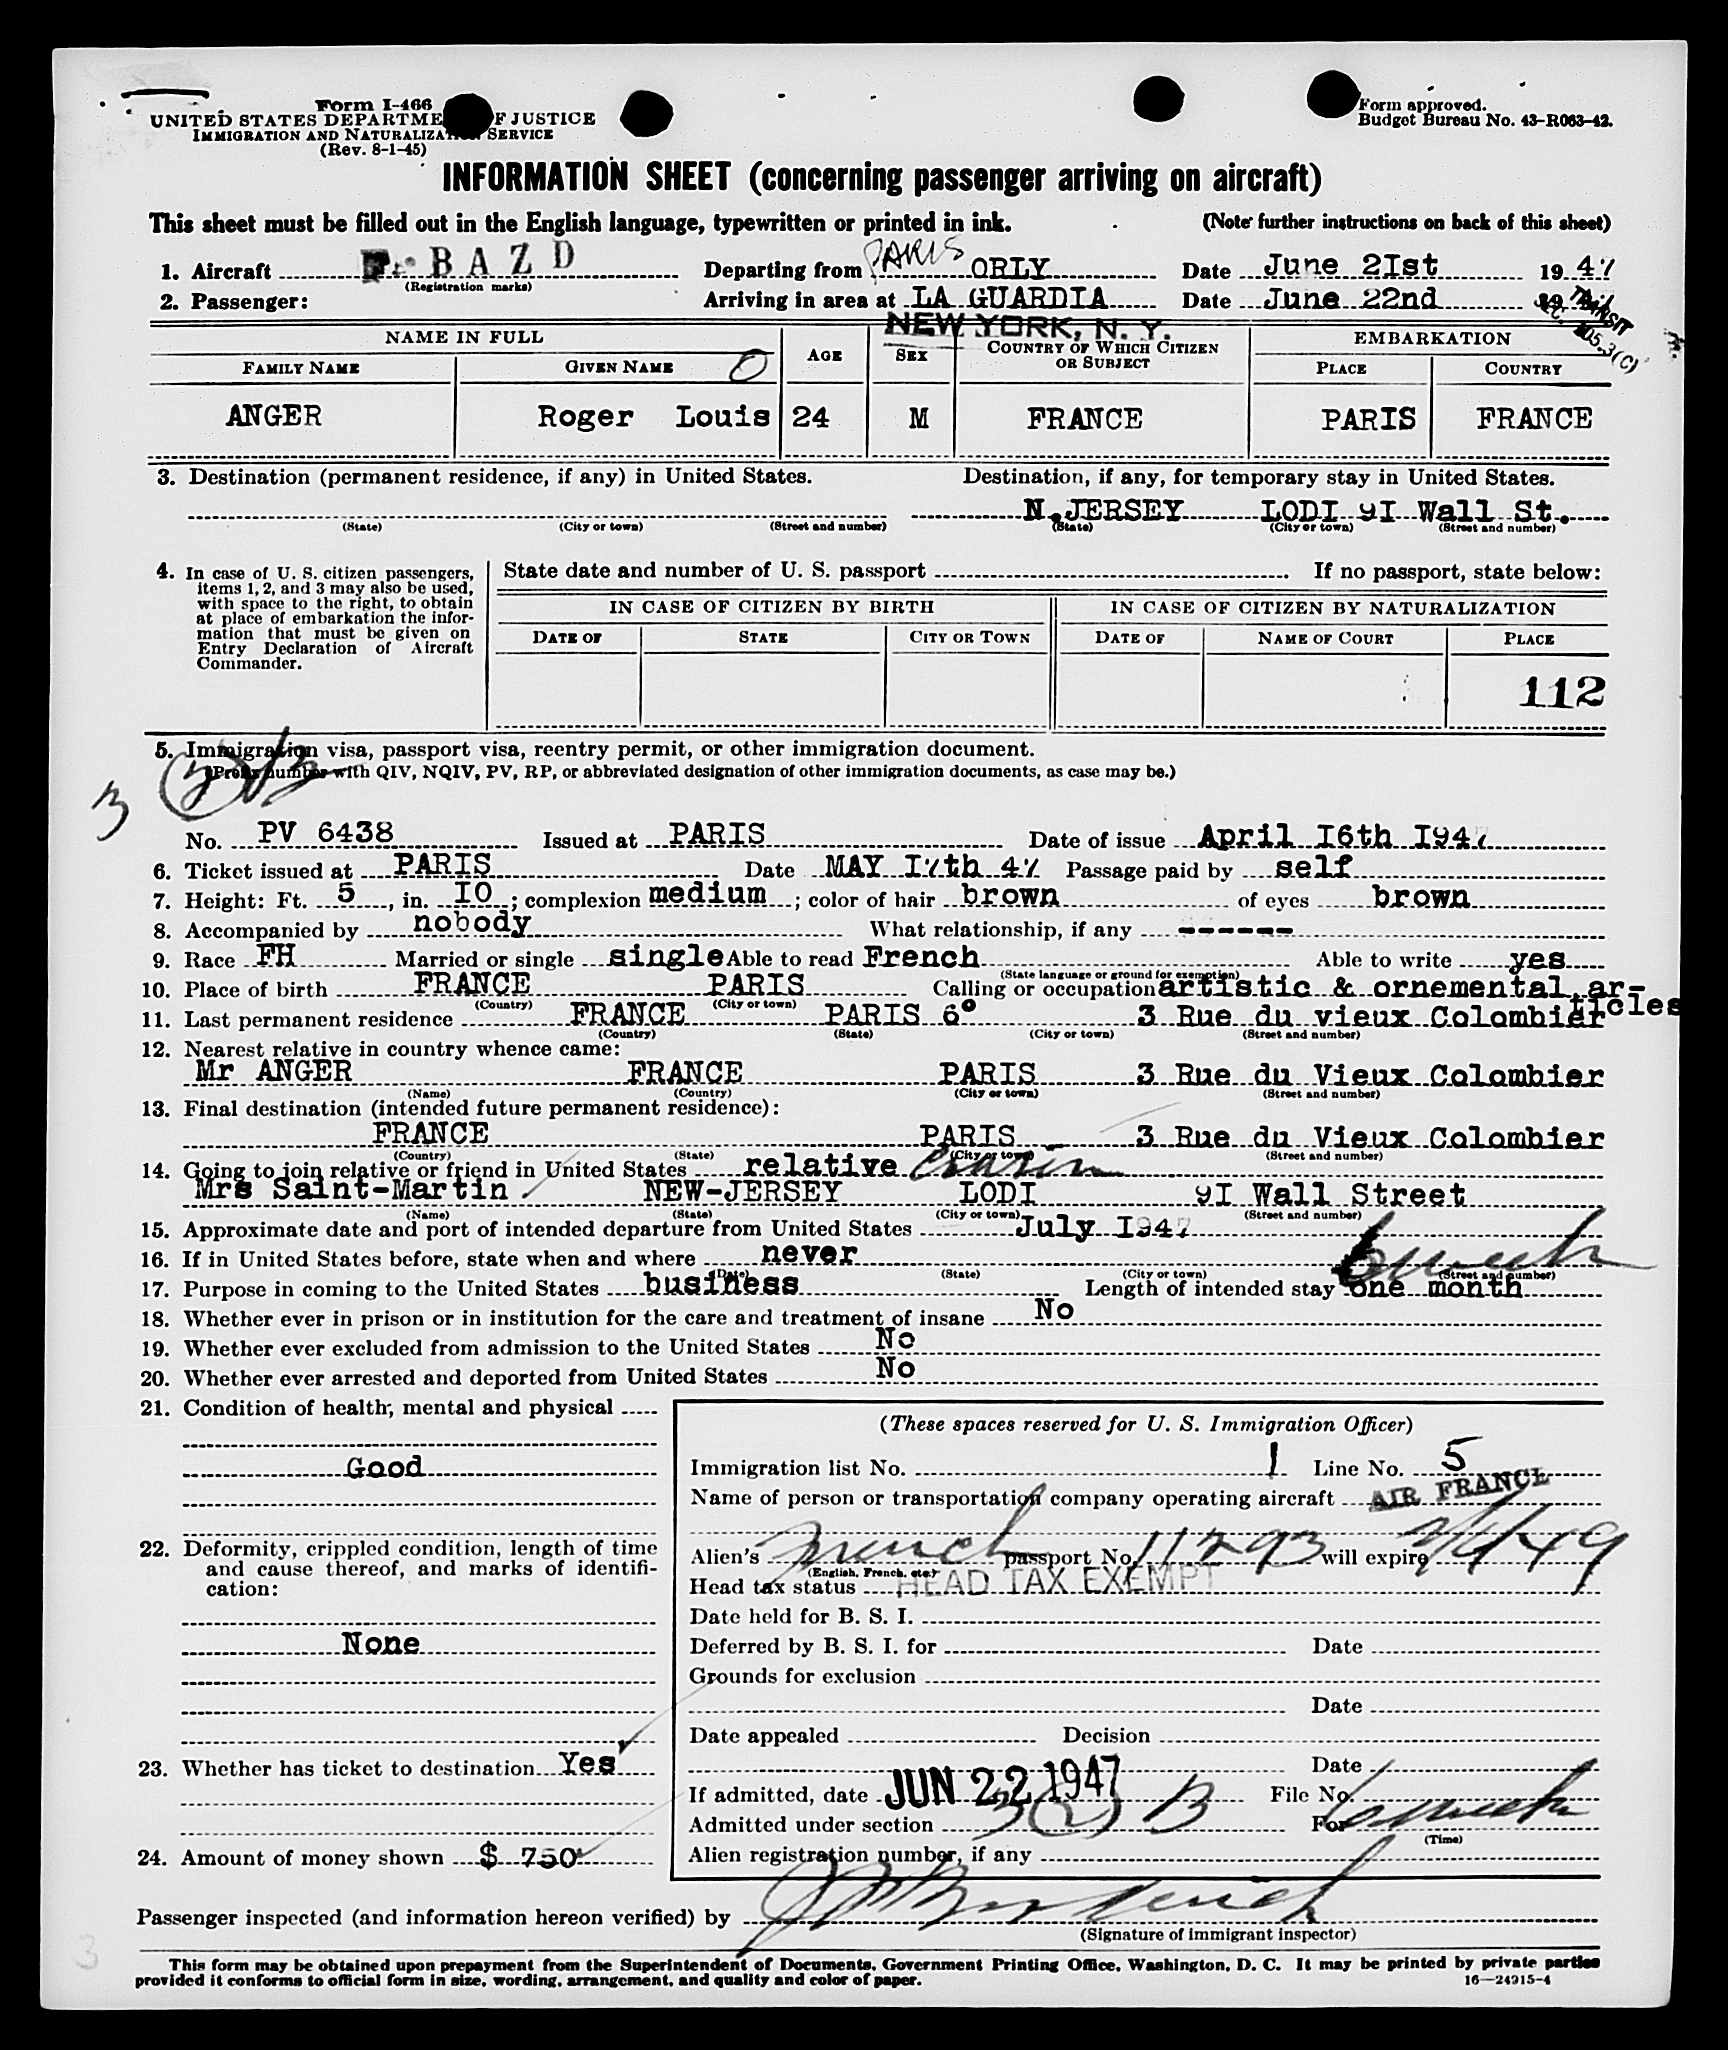 Form I-466
UNITED STATES DEPARTMENT OF JUSTICE
IMMIGRATION AND NATURALIZATION SERVICE
(Rev. 8-1-45)
Form approved.
Budget Bureau No. 43-R063-42.
INFORMATION SHEET (concerning passenger arriving on aircraft)
This sheet must be filled out in the English language, typewritten or printed in ink. (Note further instructions on back of this sheet)
1. Aircraft F-BAZD Departing from PARIS ORLY Date June 2Ist 1947
(Registration marks)
2. Passenger: Arriving in area at LA GUARDIA Date June 22nd 19
NEW YORK, N. Y.
TRANSIT
SEC. 105.3(C)
NAME IN FULL AGE SEX COUNTRY OF WHICH CITIZEN OR SUBJECT EMBARKATION
FAMILY NAME GIVEN NAME PLACE COUNTRY
ANGER Roger Louis 24 M FRANCE PARIS FRANCE
3. Destination (permanent residence, if any) in United States. Destination, if any, for temporary stay in United States.
N.JERSEY LODI 9I Wall St.
(State) (City or town) (Street and number) (State) (City or town) (Street and number)
4. In case of U. S. citizen passengers, items 1, 2, and 3 may also be used, with space to the right, to obtain at place of embarkation the information that must be given on Entry Declaration of Aircraft Commander.
State date and number of U. S. passport If no passport, state below:
IN CASE OF CITIZEN BY BIRTH IN CASE OF CITIZEN BY NATURALIZATION
DATE OF STATE CITY OR TOWN DATE OF NAME OF COURT PLACE
112
5. Immigration visa, passport visa, reentry permit, or other immigration document.
(Prefix number with QIV, NQIV, PV, RP, or abbreviated designation of other immigration documents, as case may be.)
3
No. PV 6438 Issued at PARIS Date of issue April I6th I947
6. Ticket issued at PARIS Date MAY I7th 47 Passage paid by self
7. Height: Ft. 5, in. IO; complexion medium; color of hair brown of eyes brown
8. Accompanied by nobody What relationship, if any ------
9. Race FH Married or single single Able to read French Able to write yes
(State language or ground for exemption)
10. Place of birth FRANCE PARIS Calling or occupation artistic & ornemental articles
(Country) (City or town)
11. Last permanent residence FRANCE PARIS 6° 3 Rue du vieux Colombier
(Country) (State) (City or town) (Street and number)
12. Nearest relative in country whence came:
Mr ANGER FRANCE PARIS 3 Rue du Vieux Colombier
(Name) (Country) (City or town) (Street and number)
13. Final destination (intended future permanent residence):
FRANCE PARIS 3 Rue du Vieux Colombier
(Country) (State) (City or town) (Street and number)
14. Going to join relative or friend in United States relative cousin
Mrs Saint-Martin NEW-JERSEY LODI 9I Wall Street
(Name) (State) (City or town) (Street and number)
15. Approximate date and port of intended departure from United States July I947
16. If in United States before, state when and where never
(Date) (State) (City or town) (Street and number)
6 weeks
17. Purpose in coming to the United States business Length of intended stay one month
18. Whether ever in prison or in institution for the care and treatment of insane No
19. Whether ever excluded from admission to the United States No
20. Whether ever arrested and deported from United States No
21. Condition of health, mental and physical
Good
22. Deformity, crippled condition, length of time and cause thereof, and marks of identification:
None
23. Whether has ticket to destination Yes
24. Amount of money shown $ 750
(These spaces reserved for U. S. Immigration Officer)
Immigration list No. 1 Line No. 5
Name of person or transportation company operating aircraft AIR FRANCE
Alien's French passport No. 11293 will expire 2/4/49
(English, French, etc.)
Head tax status HEAD TAX EXEMPT
Date held for B. S. I.
Deferred by B. S. I. for Date
Grounds for exclusion
Date
Date appealed Decision
Date
If admitted, date JUN 22 1947 File No.
Admitted under section 3(2) B For 6 weeks
(Time)
Alien registration number, if any
Passenger inspected (and information hereon verified) by
(Signature of immigrant inspector)
This form may be obtained upon prepayment from the Superintendent of Documents, Government Printing Office, Washington, D. C. It may be printed by private parties
provided it conforms to official form in size, wording, arrangement, and quality and color of paper. 16—24915-4
3